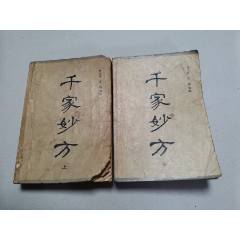 千家妙方
上
千家妙方